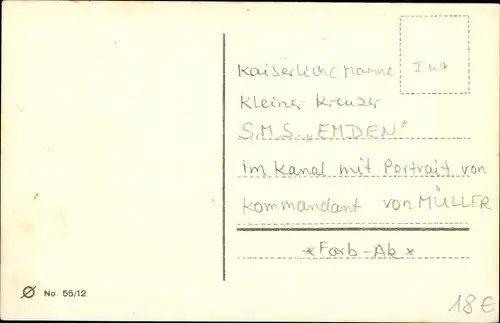 Kaiserliche Marine
Kleiner Kreuzer
S.M.S. „EMDEN"
im Kanal mit Portrait von
Kommandant von MÜLLER
*Farb-Ak*
No. 55/12
18 €